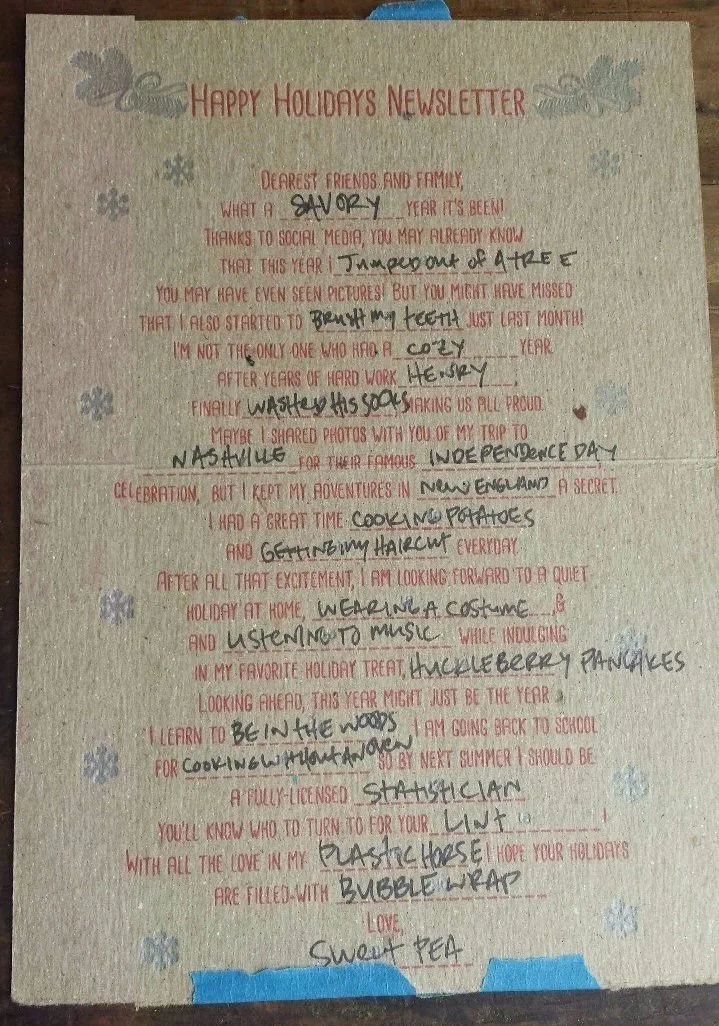 HAPPY HOLIDAYS NEWSLETTER
DEAREST FRIENDS AND FAMILY,
WHAT A SAVORY YEAR IT'S BEEN!
THANKS TO SOCIAL MEDIA, YOU MAY ALREADY KNOW
THAT THIS YEAR I Jumped out of A tREE
YOU MAY HAVE EVEN SEEN PICTURES! BUT YOU MIGHT HAVE MISSED
THAT I ALSO STARTED TO BRUSH MY tEEtH JUST LAST MONTH!
I'M NOT THE ONLY ONE WHO HAD A COZY YEAR.
AFTER YEARS OF HARD WORK HENRY,
FINALLY WASHED HIS SOCKS MAKING US ALL PROUD.
MAYBE I SHARED PHOTOS WITH YOU OF MY TRIP TO
NASHVILLE FOR THEIR FAMOUS INDEPENDENCE DAY
CELEBRATION, BUT I KEPT MY ADVENTURES IN NEW ENGLAND A SECRET.
I HAD A GREAT TIME COOKING POTATOES
AND GETTING MY HAIRCUT EVERYDAY.
AFTER ALL THAT EXCITEMENT, I AM LOOKING FORWARD TO A QUIET
HOLIDAY AT HOME, WEARING A COStUME &
AND LISTENING TO MUSIC WHILE INDULGING
IN MY FAVORITE HOLIDAY TREAT, HUCKLEBERRY PANCAKES
LOOKING AHEAD, THIS YEAR MIGHT JUST BE THE YEAR
I LEARN TO BE IN tHE WOODS I AM GOING BACK TO SCHOOL
FOR COOKING WITHOUT AN OVEN SO BY NEXT SUMMER I SHOULD BE
A FULLY-LICENSED STATISTICIAN
YOU'LL KNOW WHO TO TURN TO FOR YOUR LINt !
WITH ALL THE LOVE IN MY PLASTIC HORSE I HOPE YOUR HOLIDAYS
ARE FILLED WITH BUBBLE WRAP
LOVE,
SWEEt PEA